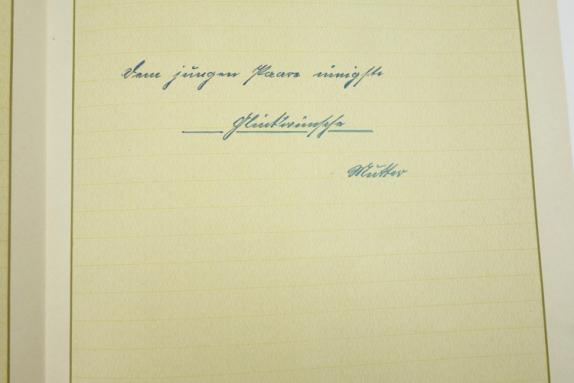 Dem jungen Paare innigste
Glückwünsche
Mutter